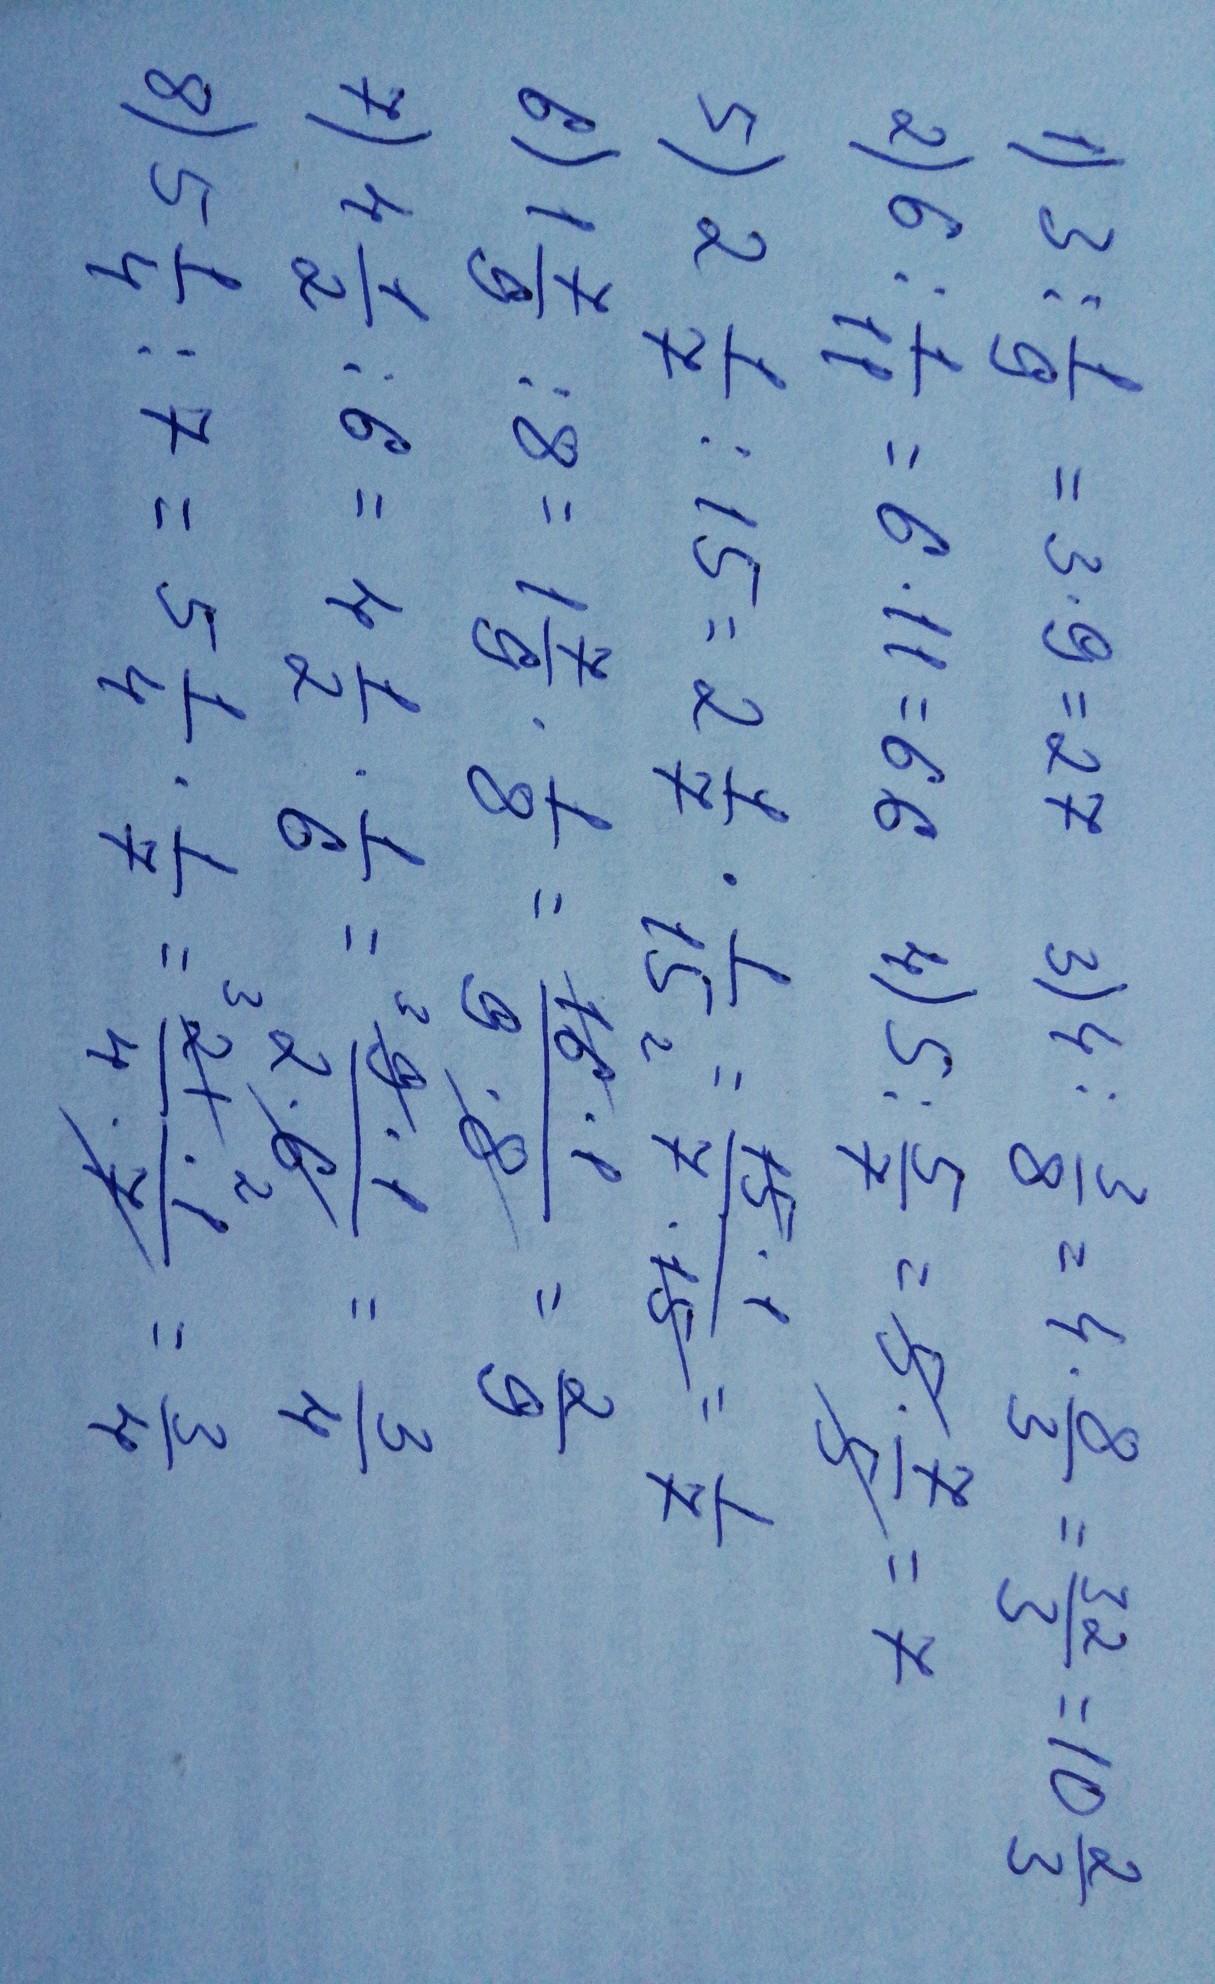 1) 3 : 1/9 = 3 · 9 = 27 3) 4 : 3/8 = 4 · 8/3 = 32/3 = 10 2/3
2) 6 : 1/11 = 6 · 11 = 66 4) 5 : 5/7 = 5 · 7/5 = 7
5) 2 1/7 : 15 = 2 1/7 · 1/15 = 15 · 1/7 · 15 = 1/7
6) 1 7/9 : 8 = 1 7/9 · 1/8 = 2 16 · 1/9 · 8 = 2/9
7) 4 1/2 : 6 = 4 1/2 · 1/6 = 3 9 · 1/2 · 6 2 = 3/4
8) 5 1/4 : 7 = 5 1/4 · 1/7 = 3 21 · 1/4 · 7 = 3/4